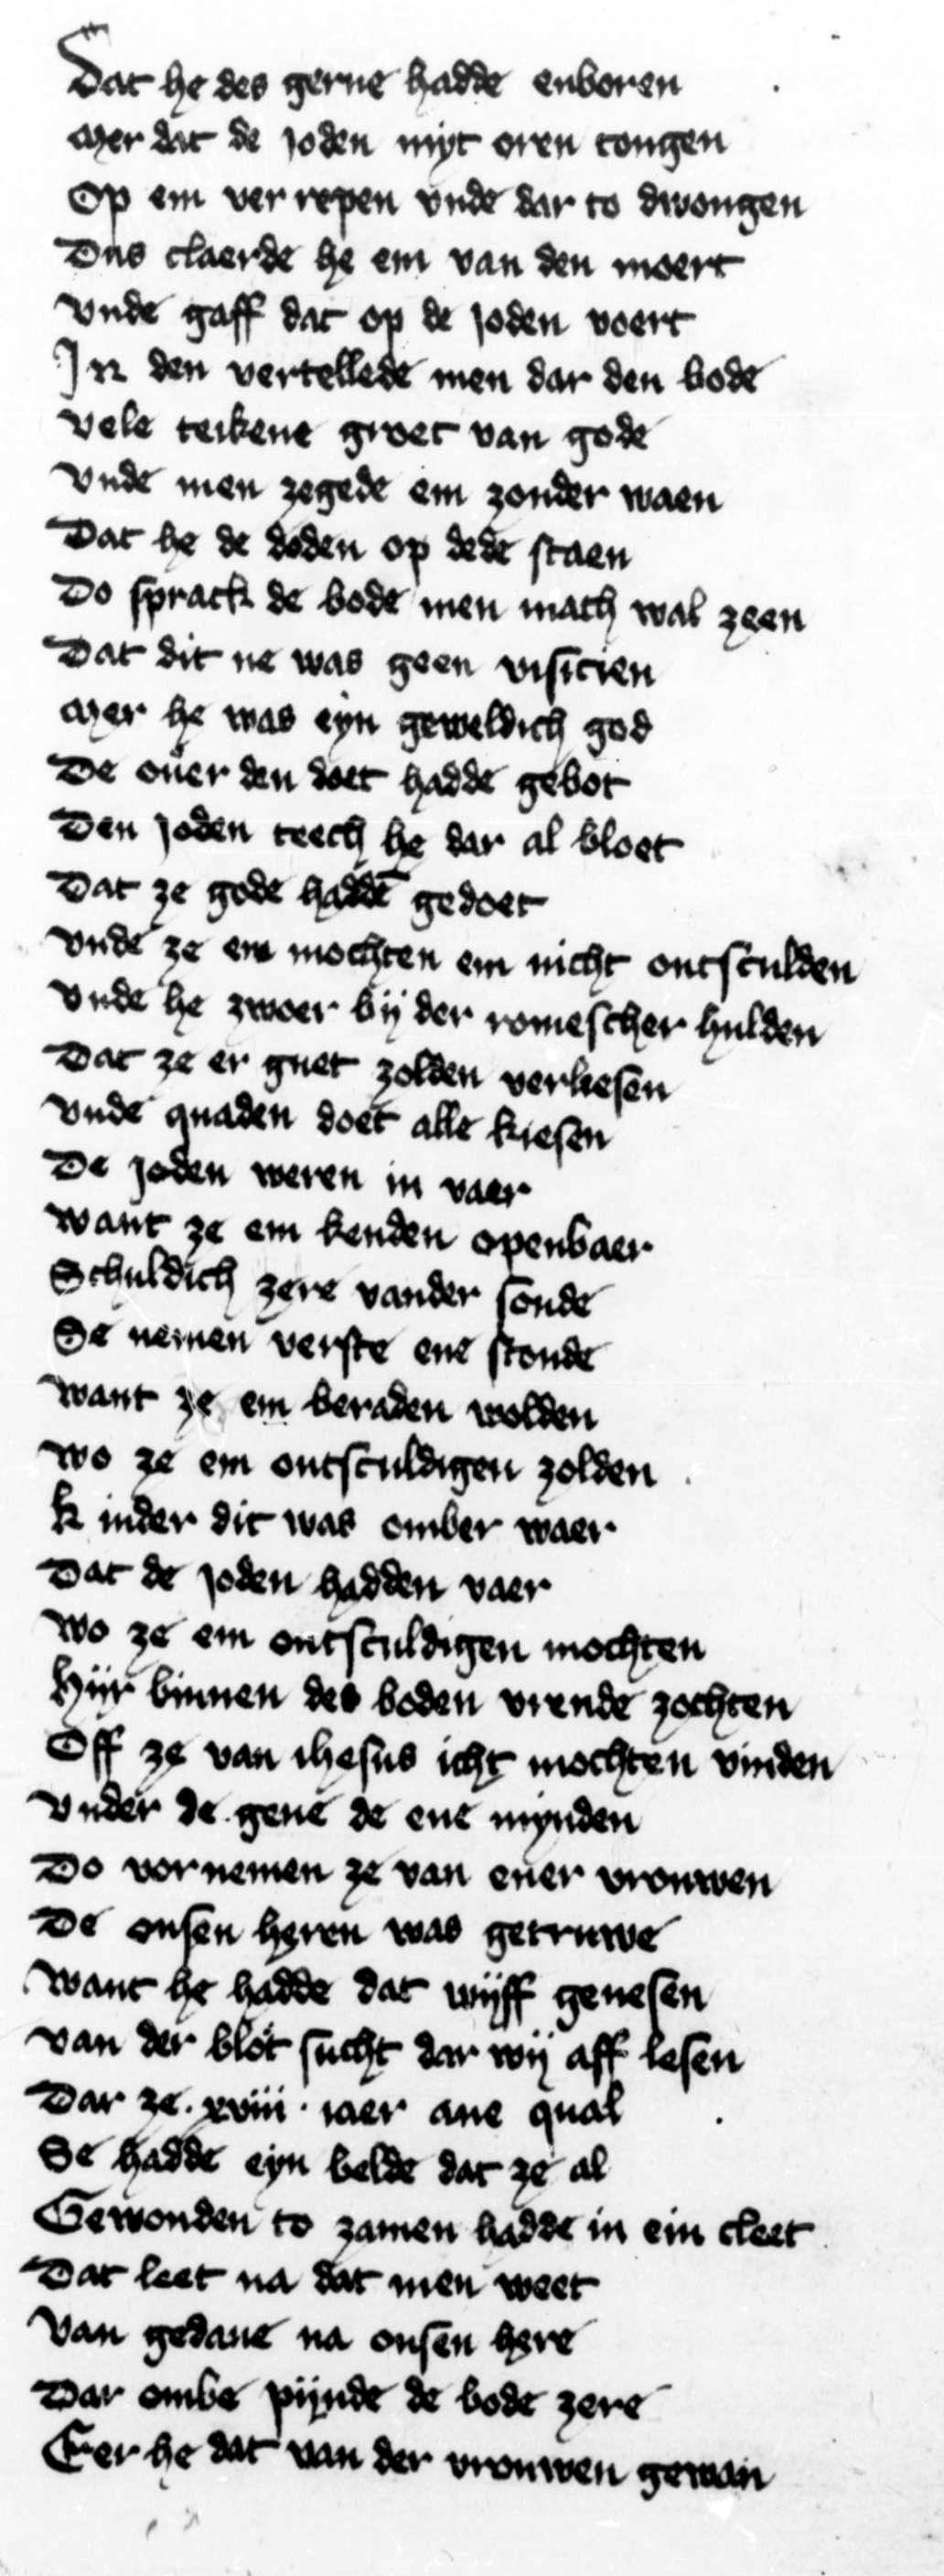 Dat he des gerne hadde enboren
Mer dat de joden myt oren tongen
Op em ver repen vnde dar to dwongen
Dus claerde he em van den moert
Vnde gaff dat op de joden voert
In den vertellede men dar den bode
Vele teikene groet van gode
Vnde men zegede em zonder waen
Dat he de doden op dede staen
Do sprack de bode men mach wal zeen
Dat dit ne was geen visicien
Mer he was eyn geweldich god
De ouer den doet hadde gebot
Den joden teech he dar al bloet
Dat ze gode hadden gedoet
Vnde ze en mochten em nicht ontsculden
Vnde he zwoer bij der romescher hulden
Dat ze er guet zolden verliesen
Vnde quaden doet alle kiesen
De joden weren in vaer
Want ze em kenden openbaer
Schuldich zere vander sonde
Se nemen verste ene stonde
Want ze em beraden wolden
Wo ze em ontsculdigen zolden
Kinder dit was omber waer
Dat de joden hadden vaer
Wo ze em ontsculdigen mochten
Hijr binnen des boden vrende zochten
Off ze van ihesus icht mochten vinden
Vnder de gene de ene mynden
Do vornemen ze van ener vrouwen
De onsen heren was getruwe
Want he hadde dat wijff genesen
Van der blot sucht dar wij aff lesen
Dar ze . xviii . iaer ane qual
Se hadde eyn belde dat ze al
Gewonden to zamen hadde in ein cleet
Dat leet na dat men weet
Van gedane na onsen here
Dar ombe pijnde de bode zere
Eer he dat van der vrouwen gewan